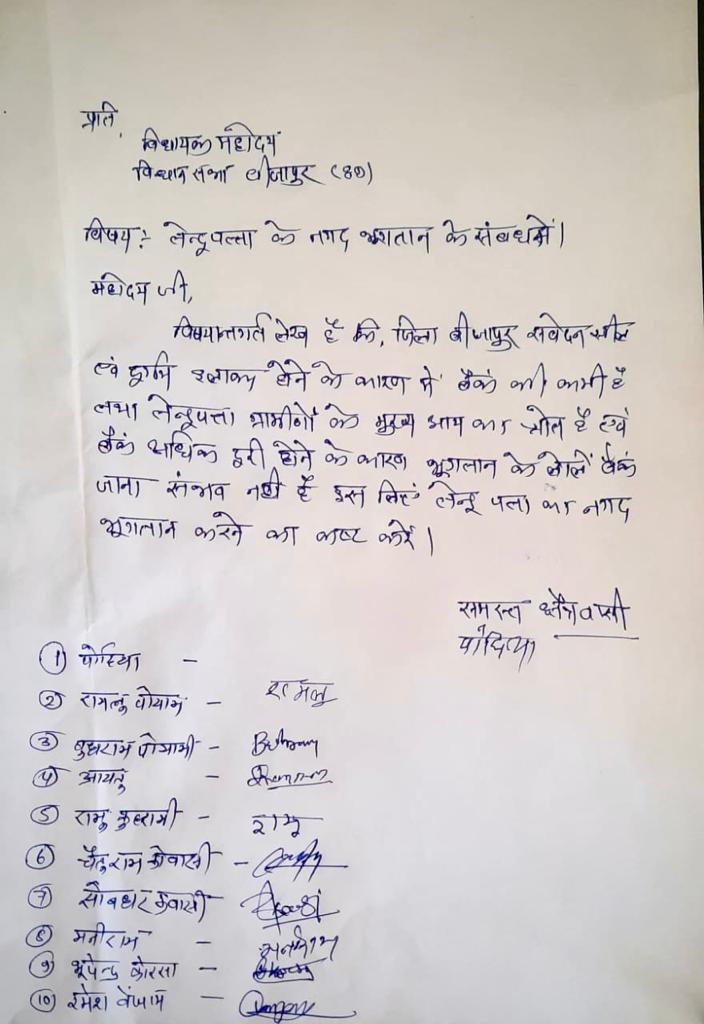 प्रति,
विधायक महोदय
विधान सभा बीजापुर (छ०)
विषय :- तेन्दूपत्ता के नगद भुगतान के संबंध में।
महोदय जी,
विषयान्तर्गत लेख है कि, जिला बीजापुर संवेदनशील
एवं इलाका होने के कारण में बैंक की कमी है
तथा तेन्दूपत्ता ग्रामीणों के मुख्य आय का स्रोत है एवं
बैंक अधिक दूरी होने के कारण भुगतान के बैंक
जाना संभव नही है इस लिए तेन्दू पत्ता का नगद
भुगतान करने का कष्ट करें।
समस्त क्षेत्रवासी
① पोदिया -
② रामलु पोयाम - रामलु
③ बुधराम पोयामी - Budhram
④ आयतु -
⑤ रामु कुहरामी - रामु
⑥ चैतुराम कोवासी -
⑦ कवासी -
⑧ मनीराम - मनीराम
⑨ भूपेन्द्र कोरसा -
⑩ रमेश वेंजाम -